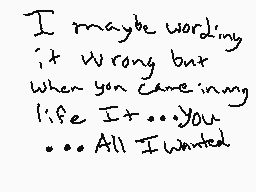 I maybe wording
it wrong but
when you came in my
life It...you
...All I wanted